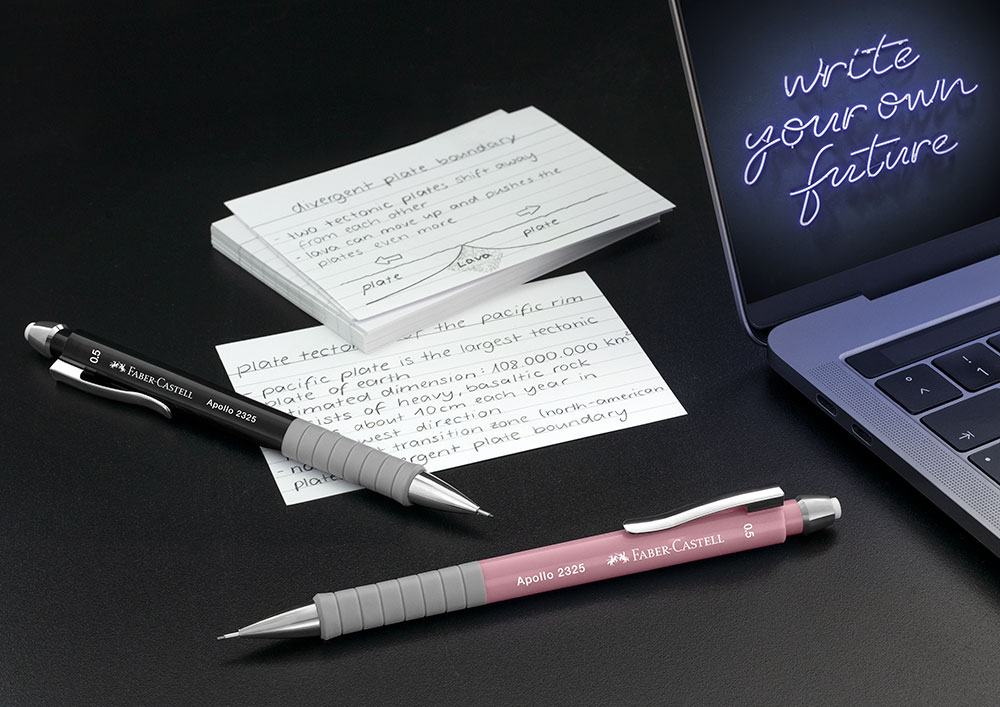 write
your own
future
divergent plate boundary
- two tectonic plates shift away
from each other
- lava can move up and pushes the
plates even more
plate
Lava
plate
plate the pacific rim
pacific plate is the largest tectonic
plate of earth
estimated dimension: 108.000.000 km²
of heavy, basaltic rock
about 10cm each year in
west direction
transition zone (north-american
plate boundary
0.5
FABER-CASTELL
Apollo 2325
Apollo 2325
FABER-CASTELL
0.5
^
°
!
1